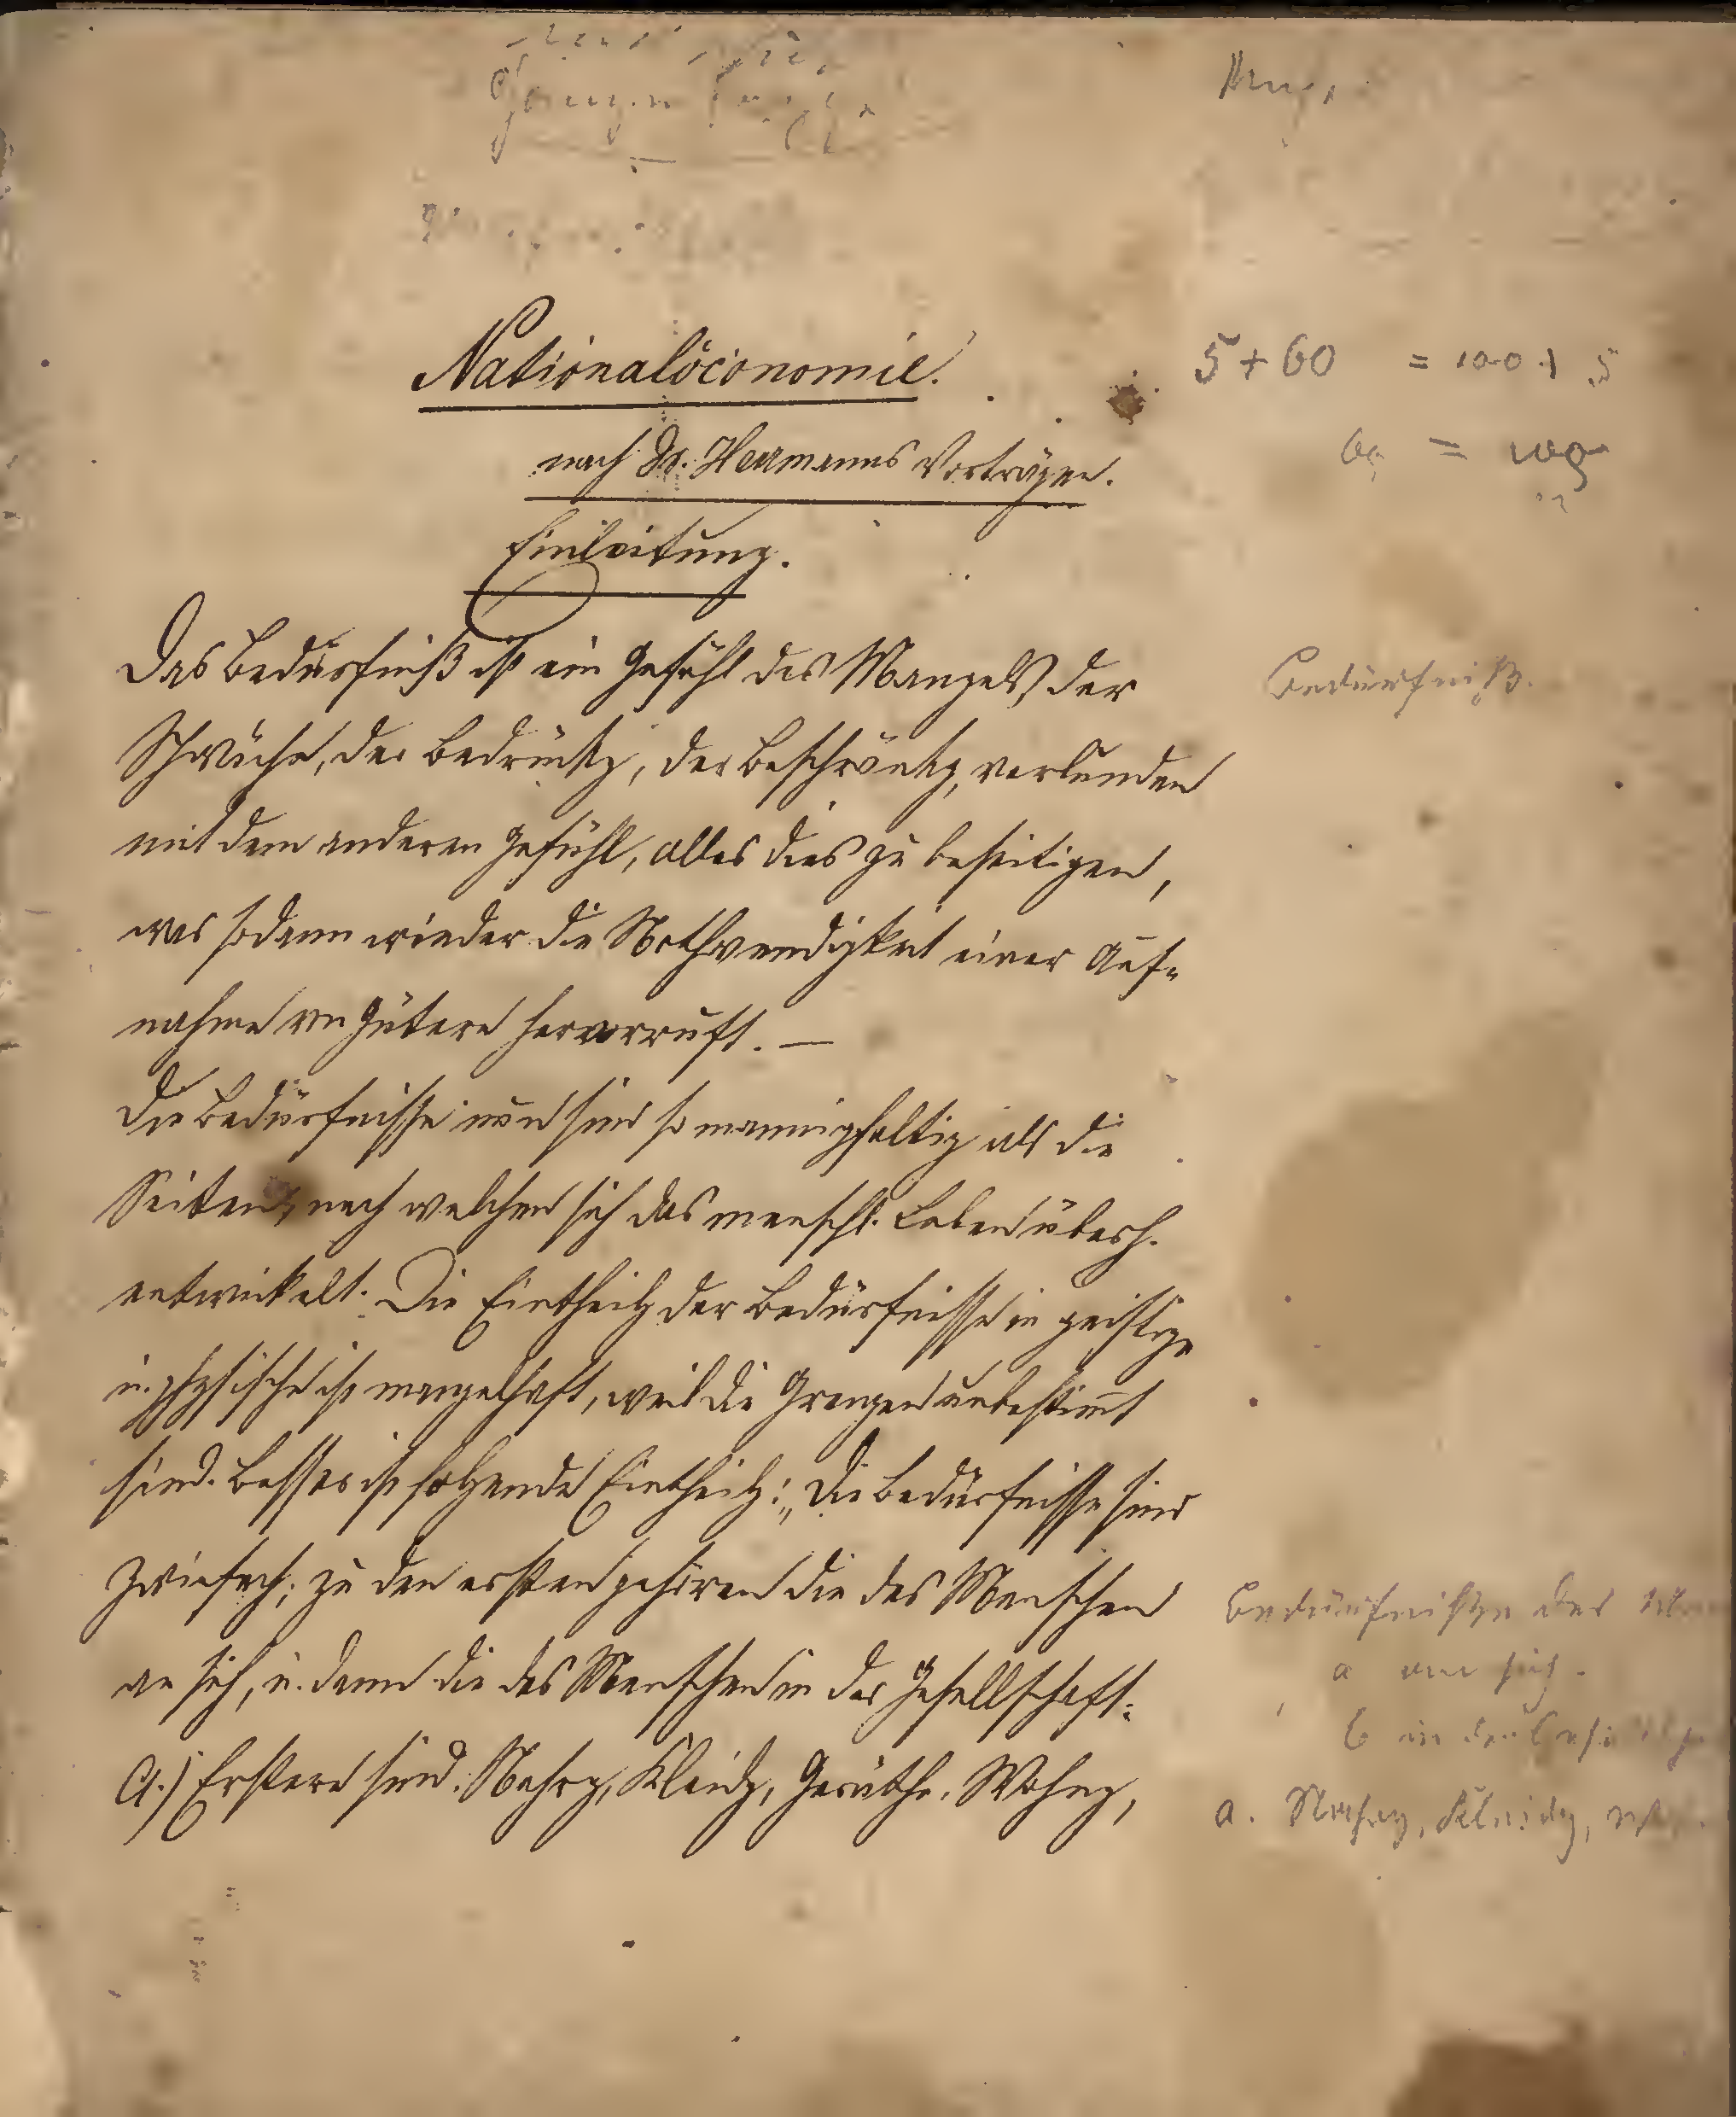 Nationalöconomie.
nach Dr. Hermanns Vorträgen.
Einleitung.
Das Bedürfniß ist ein Gefühl des Mangels, der
Schwäche, der Bedrückg, der Beschränkg, verbunden
mit dem anderen Gefühl, alles dies zu beseitigen,
was sodann wieder die Nothwendigkeit einer Auf-
nahme von Gütern hervorruft. —
Die Bedürfnisse nun sind so mannigfaltig als die
Seiten, nach welchen sich das menschl. Leben überh.
entwickelt. Die Eintheilg der Bedürfnisse in geistige
u. physische ist mangelhaft, weil die Grenzen unbestimmt
sind. Besser ist folgende Eintheilg: „Die Bedürfnisse sind
zwiefach; zu den ersten gehören die des Menschen
an sich, u. dann die des Menschen in der Gesellschaft:
a.) Erstere sind: Nahrg, Kleidg, Geräthe, Wohng,
5 + 60 = 100 + 5
Bedürfniß.
Bedürfnisse des
a an sich.
b in der
a. Nahrg, Kleidg,